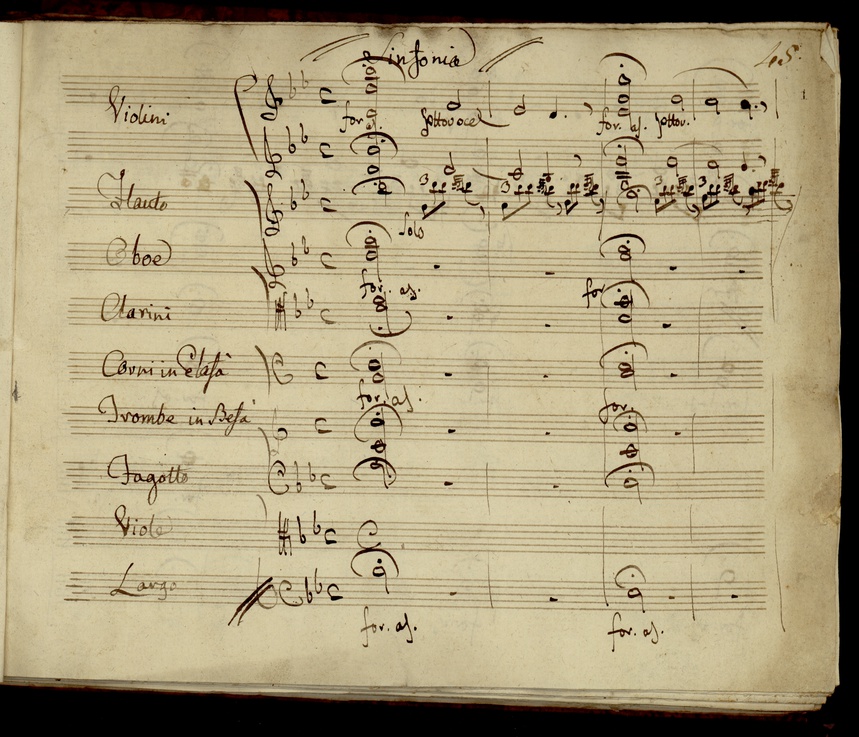 Sinfonia
Violini
for. as.
sottovoce
for. as.
sottov.
Flauto
3
3
3
3
Solo
Oboe
for. as.
for
Clarini
Corni in Elafà
for. as.
for
Trombe in Befà
Fagotto
Viole
Largo
for. as.
for. as.